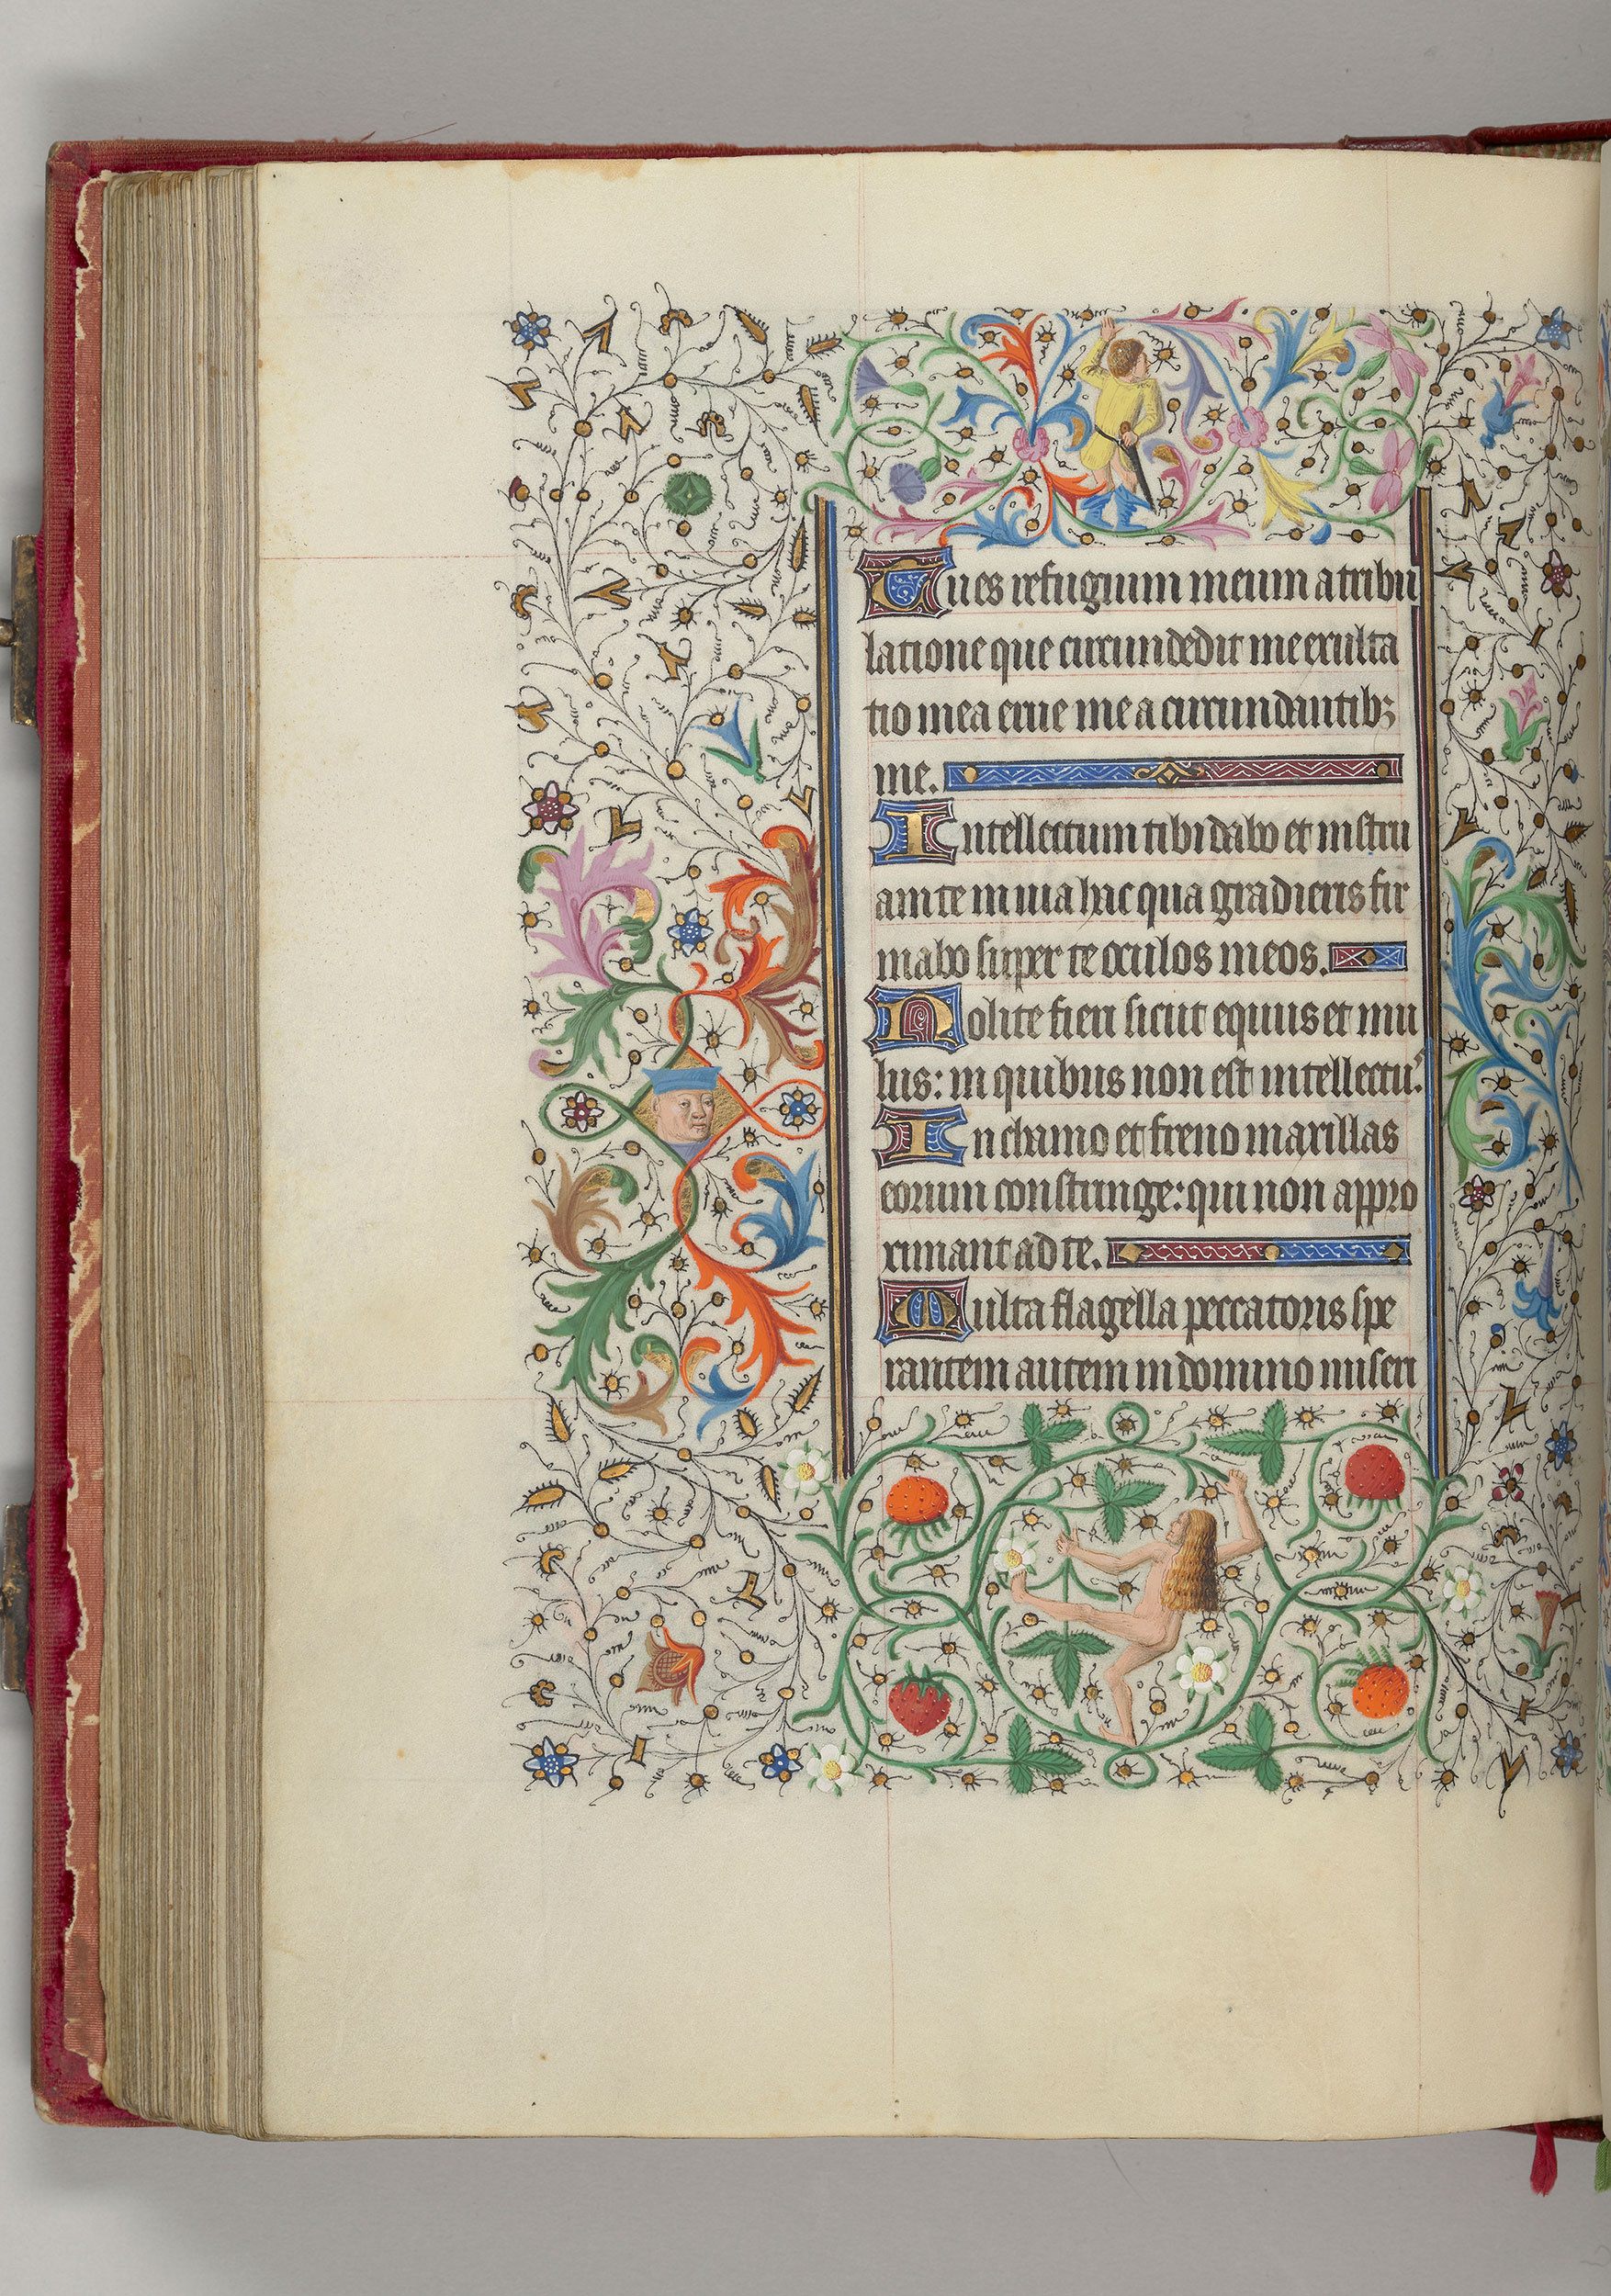 Tu es refugium meum a tribu
latione que circundedit me exulta
tio mea erue me a circundantib;
me.
Intellectum tibi dabo et instru
am te in uia hac qua gradieris fir
mabo super te oculos meos.
Nolite fieri sicut equus et mu
lus: in quibus non est intellectus.
In chamo et freno maxillas
eorum constringe: qui non appro
ximant ad te.
Multa flagella peccatoris spe
rantem autem in domino miseri